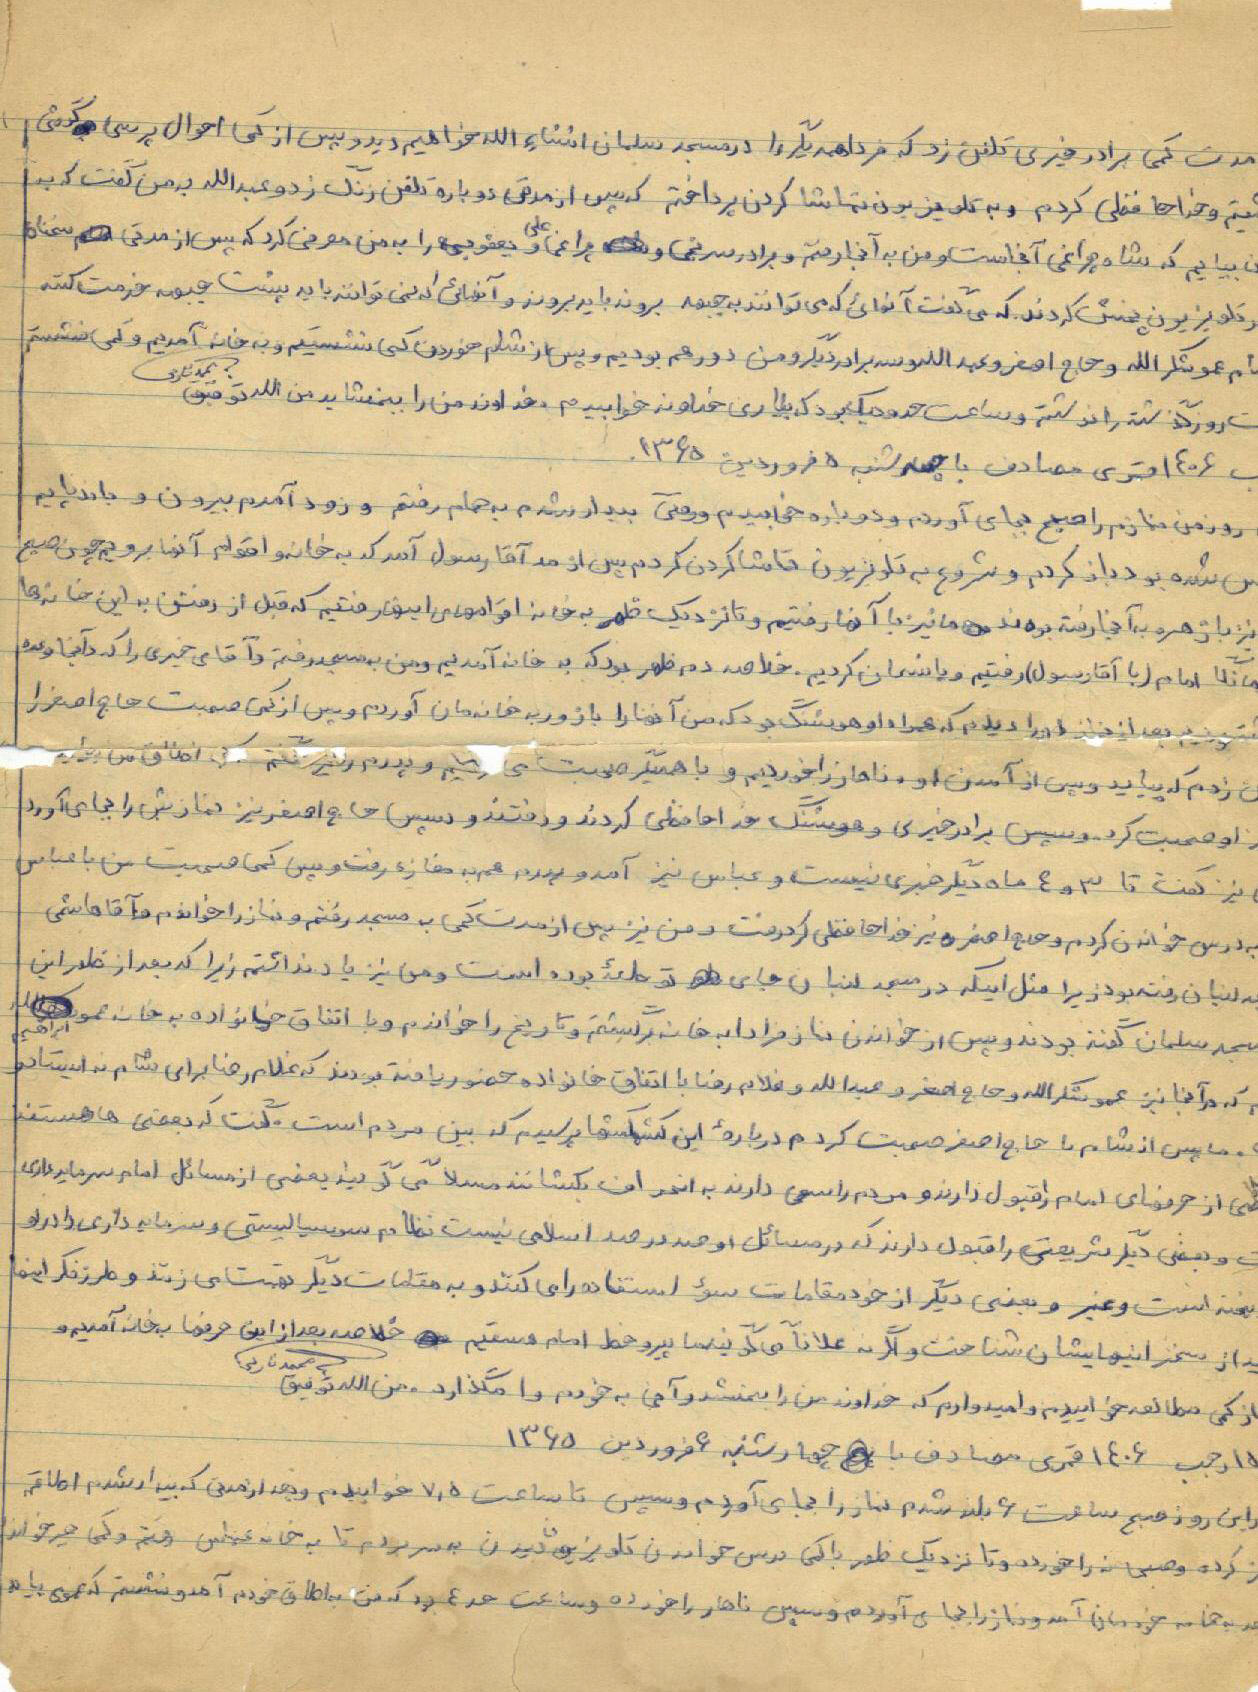 مدت کمی برادر خیری تلفن زد که فردا همدیگر را در مسجد سلمان انشاء الله خواهیم دید و پس از کمی احوال پرسی گوشی
شتیم و خداحافظی کردم و به تلویزیون تماشا کردن پرداختم که پس از مدتی دوباره تلفن زنگ زد و عبدالله به من گفت که به
بیایم که شاه چراغی آنجاست و من به آنجا رفتم و برادر و چراغی و علی یعقوبی را به من معرفی کرد که پس از مدتی سخنان
تلویزیون پخش کردند. که می گفت آنهائی که می توانند به جبهه بروند باید بروند و آنهائی که نمی توانند باید پشت جبهه خدمت کنند
عمو شکرالله و حاج اصغر و عبدالله و سه برادر دیگر و من دور هم بودیم و پس از شام خوردن کمی نشستیم و به خانه آمدیم و کمی نشستم
روز گذشته را نوشتم و ساعت حدود یک بود که به یاری خداوند خوابیدم. خداوند من را ببخشاید من الله توفیق
۱۴۰۶ قمری مصادف با سه شنبه ۵ فروردین ۱۳۶۵.
روز من نمازم را صبح بجای آوردم و دوباره خوابیدم وقتی بیدار شدم به حمام رفتم و زود آمدم بیرون و
شده بود باز کردم و شروع به تلویزیون تماشا کردن کردم پس از مد آقا رسول آمد که به خانه اقوام آنها برویم چون صبح
نیز با زهره به آنجا رفته بودند ما نیز با آنها رفتیم و تا نزدیک ظهر به خانه اقوامهای اینها رفتیم که قبل از رفتن به این خانه ها
امام (با آقا رسول) رفتیم و پانسمان کردیم. خلاصه دم ظهر بود که به خانه آمدیم و من به مسجد رفتم و آقای خیری را که در آنجا وعده
بعد از نماز او را دیدم که همراه او هوشنگ بود که من آنها را با زور به خانه مان آوردم و پس از کمی صحبت حاج اصغر را
زدم که بیاید و پس از آمدن او، ناهار را خوردیم و با همدیگر صحبت می و پدرم نیز اطاق من
او صحبت کرد. و سپس برادر خیری و هوشنگ خداحافظی کردند و رفتند و سپس حاج اصغر نیز نمازش را بجای آورد
نیز گفت تا ۳ و ۴ ماه دیگر خبری نیست و عباس نیز آمد و پدرم هم به مغازه رفت و پس کمی صحبت من با عباس
به درس خواندن کردم و حاج اصغر نیز خداحافظی کرد رفت و من نیز پس از مدت کمی به مسجد رفتم و نماز را خواندم و آقا هاشمی
لنبان رفته بود زیرا مثل اینکه در مسجد لنبان جای بوده است و من نیز یاد نداشتم زیرا که بعد از ظهر این
مسجد سلمان گفته بودند و پس از خواندن نماز مرا دا به خانه برگشتم و تاریخ را خواندم و با اتفاق خانواده به خانه عمو ابراهیم
که در آنجا نیز عمو شکرالله و حاج اصغر و عبدالله و غلام رضا با اتفاق خانواده حضور یافته بودند که غلام رضا برای شام نه ایستاد و
ما پس از شام با حاج اصغر صحبت کردم درباره این کشمکشها پرسیدم که بین مردم است. گفت که بعضی ها هستند
از حرفهای امام را قبول دارند و مردم را سعی دارند به انحراف بکشانند مثلا می گویند بعضی از مسائل امام سرمایه داری
و بعضی دیگر شریعتی را قبول دارند که در مسائل او صد در صد اسلامی نیست نظام سوسیالیستی و سرمایه داری را در او
است و غیر و بعضی دیگر از خود مقامات سوء استفاده را می کنند و به مقامات دیگر تهمت می زنند و طرز فکر اینها
از سخنرانیهایشان شناخت و اگر نه علاناً می گویند ما پیرو خط امام هستیم خلاصه بعد از این حرفها به خانه آمدیم و
از کمی مطالعه خوابیدم و امیدوارم که خداوند من را ببخشد و آنی به خودم وا مگذارد. من الله توفیق
۱۵ رجب ۱۴۰۶ قمری مصادف با چهارشنبه ۶ فروردین ۱۳۶۵
این روز صبح ساعت ۶ بلند شدم نماز را بجای آوردم و سپس تا ساعت ۷،۵ خوابیدم و بعد از مدتی که بیدار شدم اطاقم
کرده و صبحانه را خورده و تا نزدیک ظهر با کمی درس خواندن تلویزیون دیدن به سر بردم تا به خانه عباس رفتم و کمی
به خانه خودمان آمد و نماز را بجای آوردم و سپس ناهار را خورده و ساعت حد ۴ بود که من به اطاق خودم آمد و نشستم که